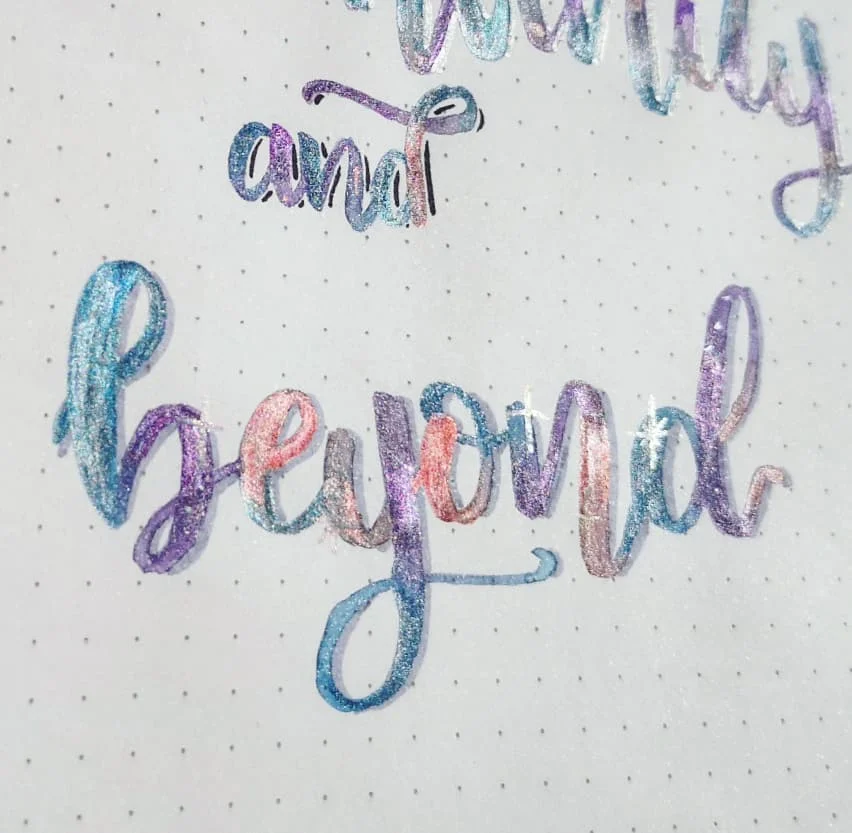 and
beyond